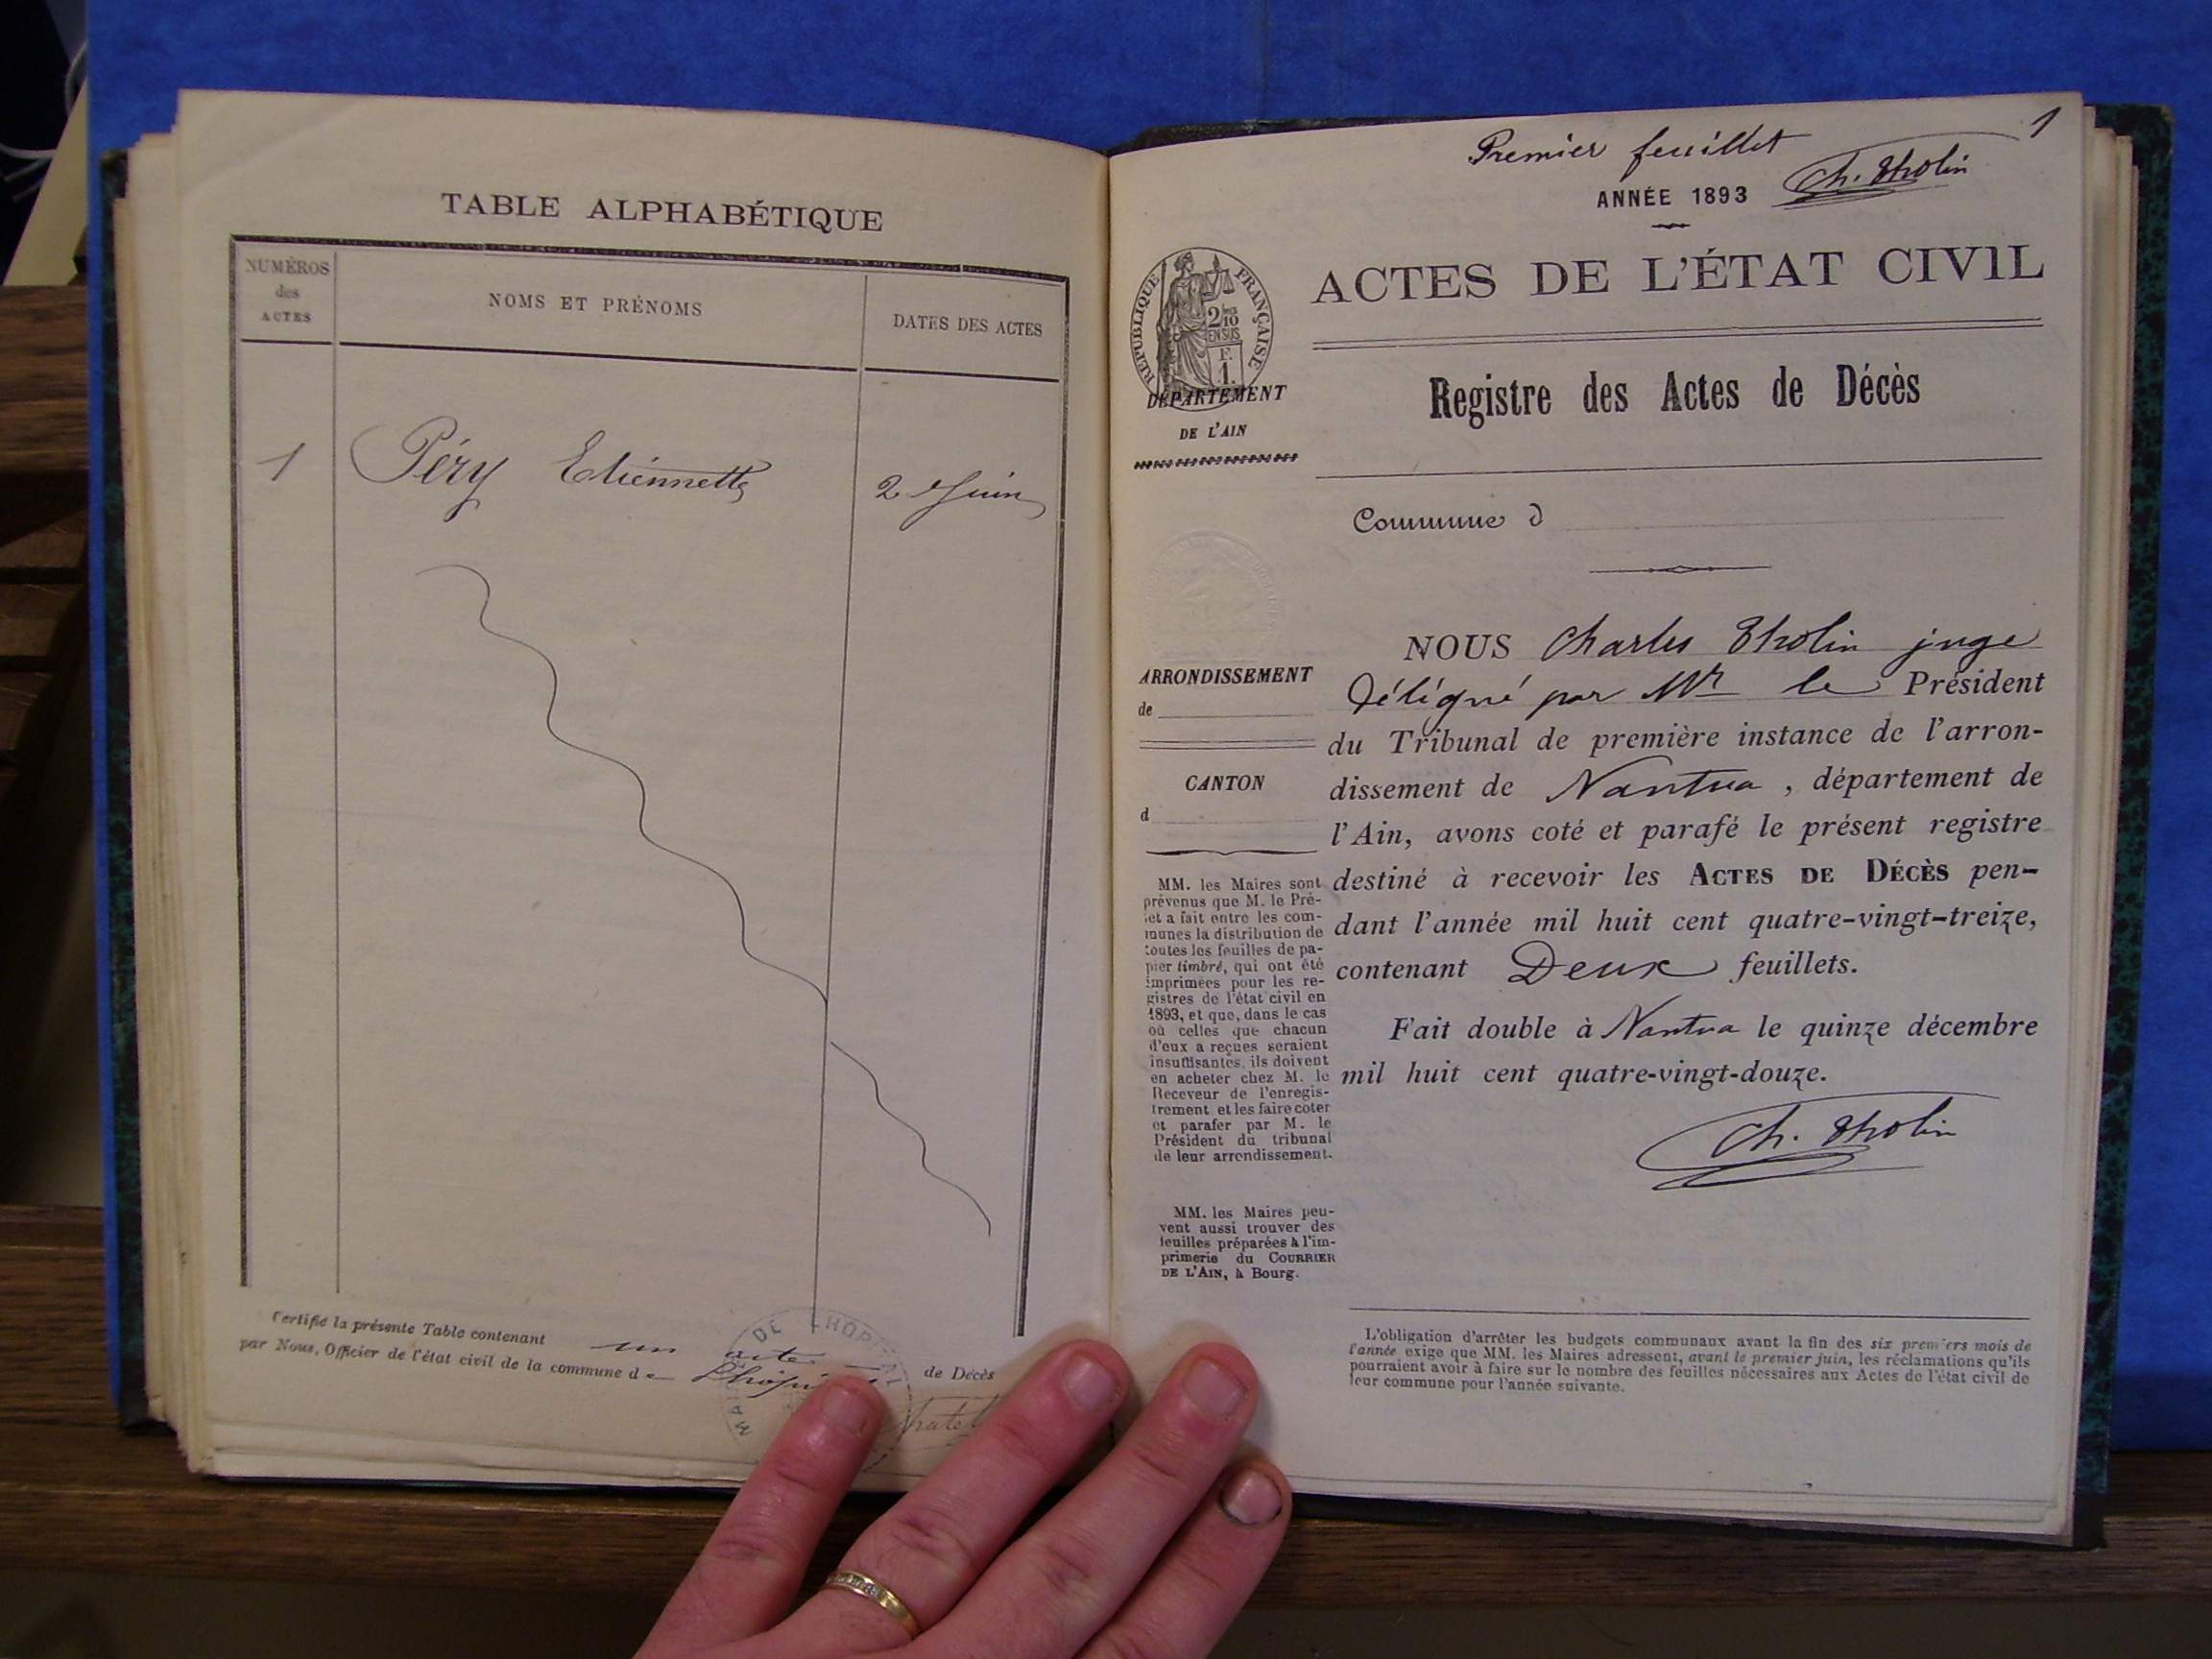 TABLE ALPHABÉTIQUE
NUMÉROS
des
ACTES
NOMS ET PRÉNOMS
DATES DES ACTES
1 Péry Etiennette 2 Juin
Certifié la présente Table contenant un acte de Décès
par Nous, Officier de l'état civil de la commune de
MAIRIE DE LHÔPITAL
1
Premier feuillet
ANNÉE 1893 Ch. Tholin
ACTES DE L'ÉTAT CIVIL
RÉPUBLIQUE FRANÇAISE
2/10
EN SUS
F.
1.
DÉPARTEMENT
DE L'AIN
Registre des Actes de Décès
Commune d
ARRONDISSEMENT
de
CANTON
d
NOUS Charles Tholin juge
délégué par Mr le Président
du Tribunal de première instance de l'arron-
dissement de Nantua, département de
l'Ain, avons coté et parafé le présent registre
destiné à recevoir les ACTES DE DÉCÈS pen-
dant l'année mil huit cent quatre-vingt-treize,
contenant Deux feuillets.
Fait double à Nantua le quinze décembre
mil huit cent quatre-vingt-douze.
Ch. Tholin
MM. les Maires sont
prévenus que M. le Pré-
fet a fait entre les com-
munes la distribution de
toutes les feuilles de pa-
pier timbré, qui ont été
imprimées pour les re-
gistres de l'état civil en
1893, et que, dans le cas
où celles que chacun
d'eux a reçues seraient
insuffisantes, ils doivent
en acheter chez M. le
Receveur de l'enregis-
trement et les faire coter
et parafer par M. le
Président du tribunal
de leur arrondissement.
MM. les Maires peu-
vent aussi trouver des
feuilles préparées à l'im-
primerie du COURRIER
DE L'AIN, à Bourg.
L'obligation d'arrêter les budgets communaux avant la fin des six premiers mois de
l'année exige que MM. les Maires adressent, avant le premier juin, les réclamations qu'ils
pourraient avoir à faire sur le nombre des feuilles nécessaires aux Actes de l'état civil de
leur commune pour l'année suivante.